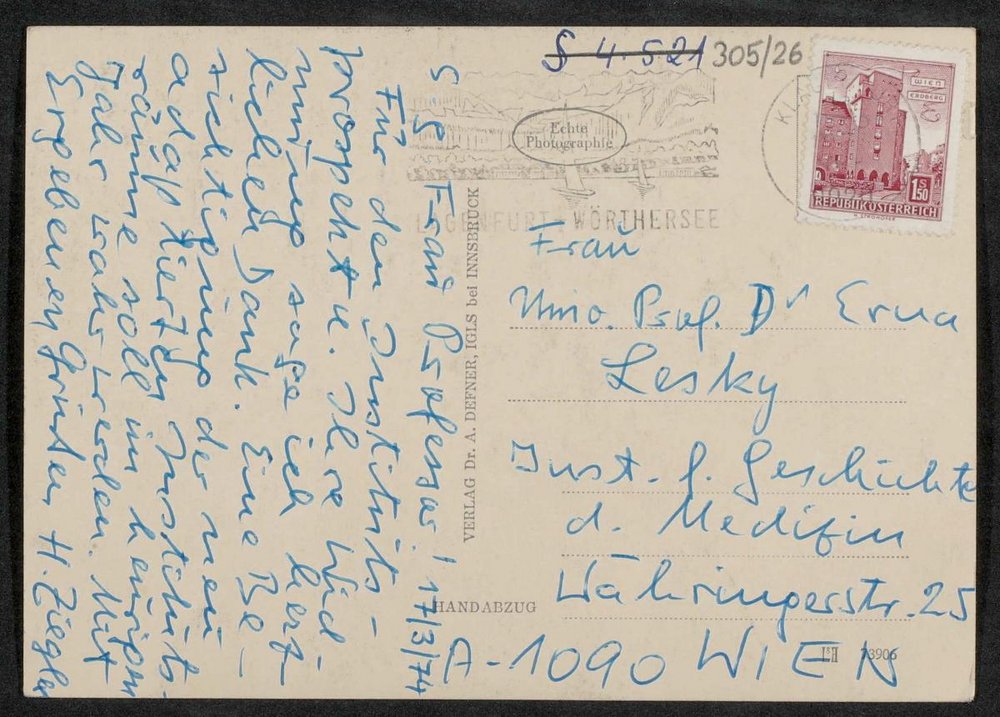 S 4.521
305/26
WIEN
ERDBERG
1.50
S
REPUBLIK ÖSTERREICH
Echte
Photographie
KLAGENFURT WÖRTHERSEE
S. g. Frau Professor! 17/3/74
Für den Instituts-
prospekt u. Ihre Wid-
mung sage ich herz-
lichen Dank. Eine Be-
sichtigung der neu
adaptierten Instituts-
räume soll im heurigen
Jahr wahr werden. Mit
Ergebenen Grüßen H. Ziegler
VERLAG Dr. A. DEFNER, IGLS bei INNSBRUCK
HANDABZUG
Frau
Univ. Prof. Dr Erna
Lesky
Inst. f. Geschichte
d. Medizin
Währingerstr. 25
A-1090 WIEN
73906